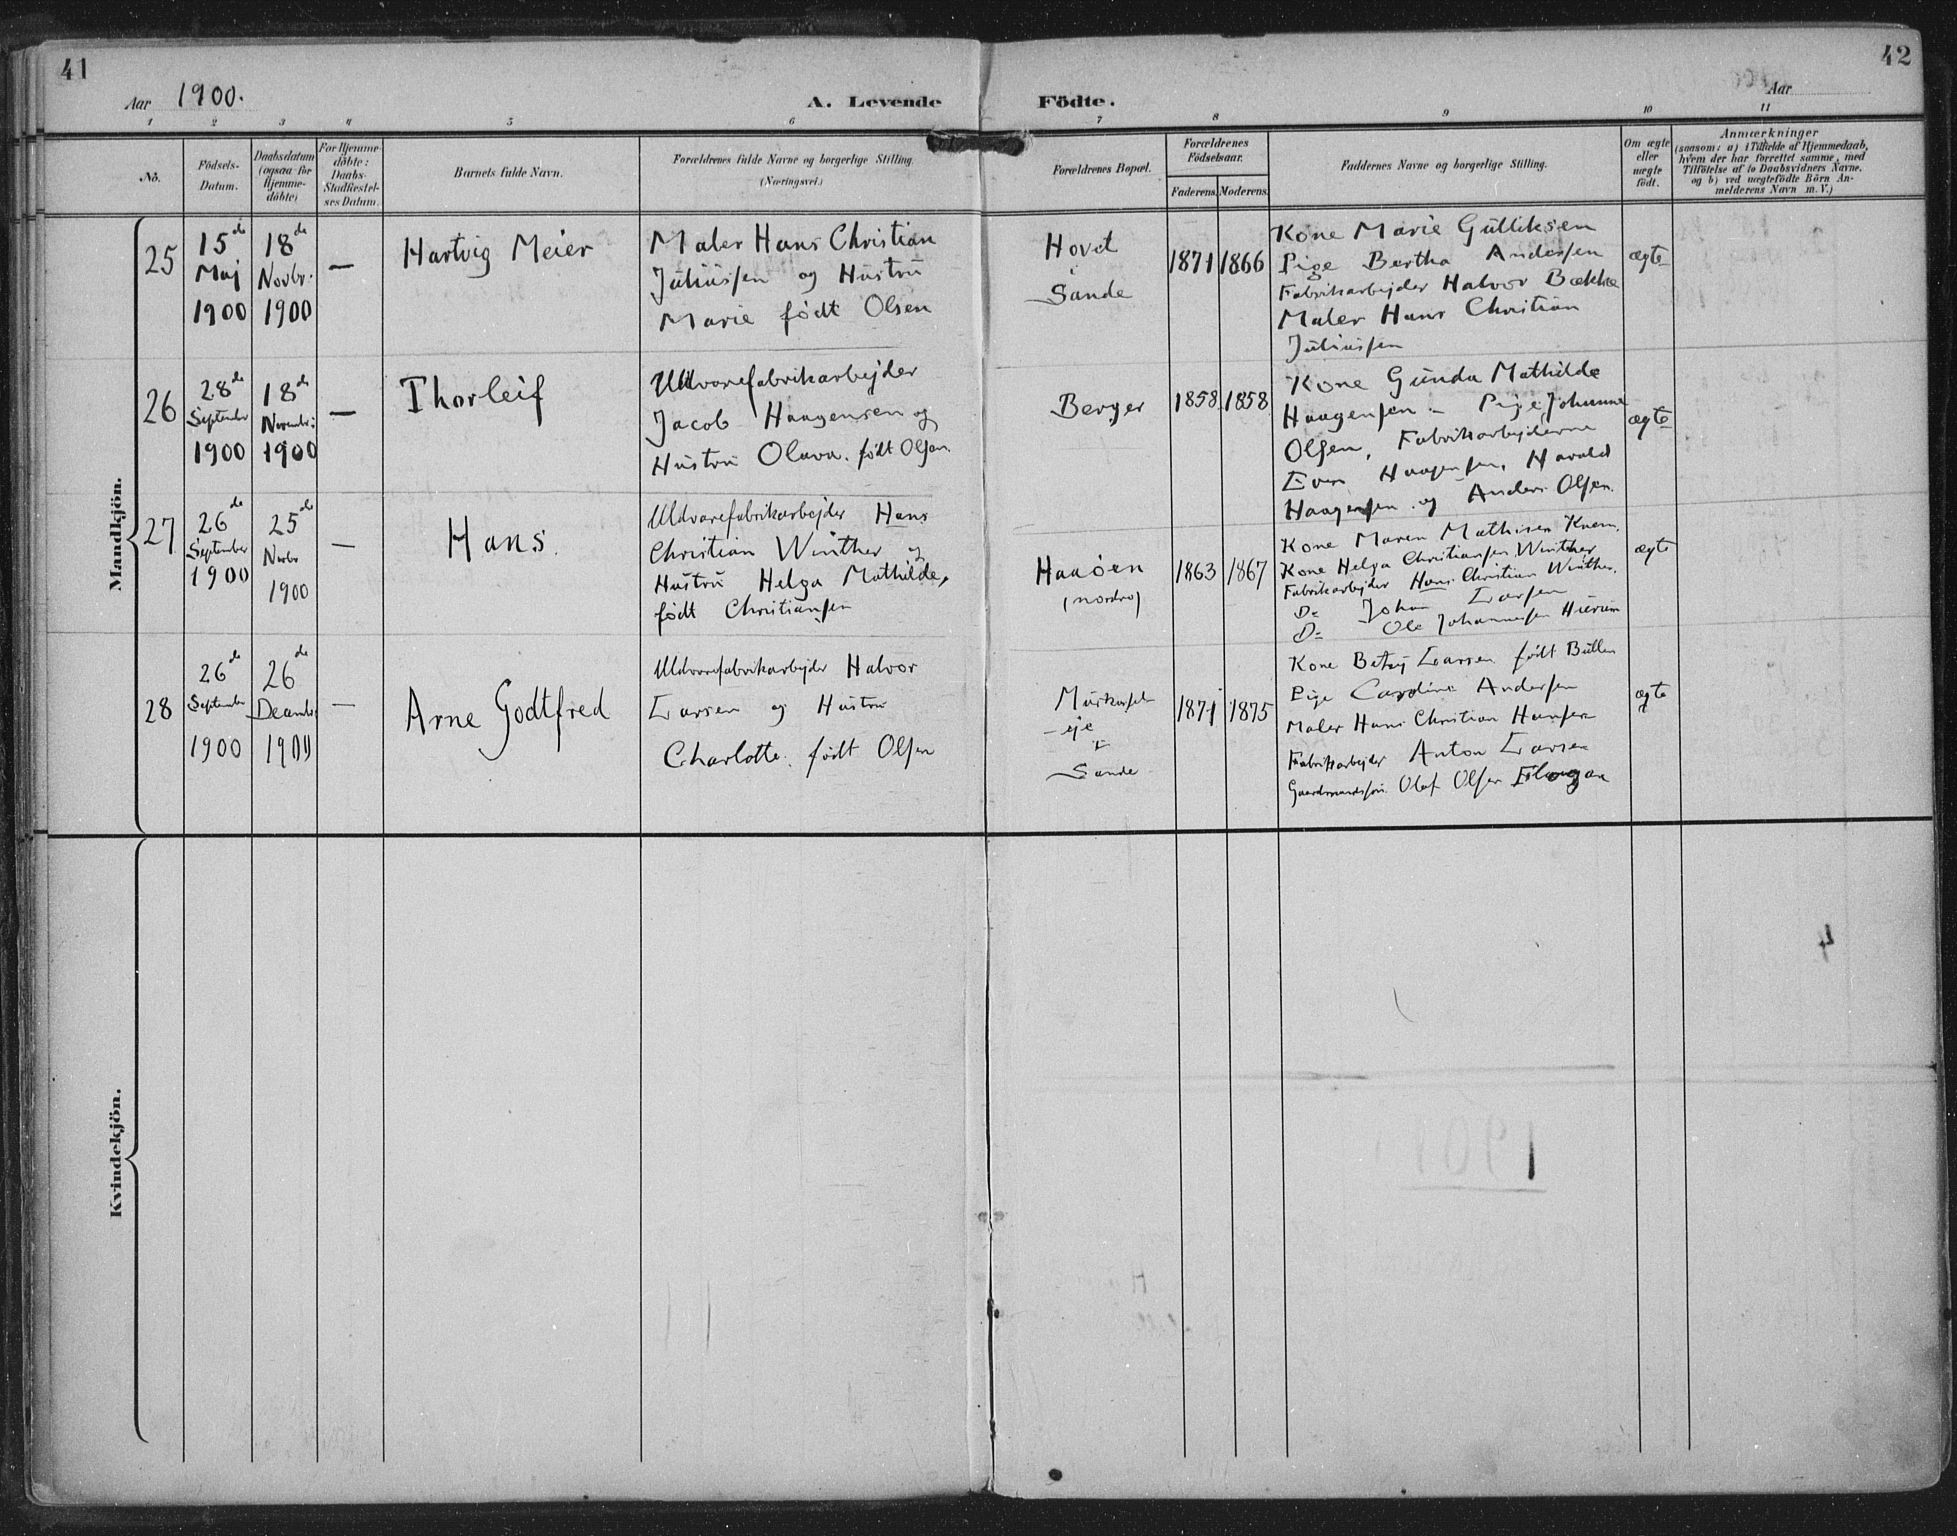 41
42
Aar 1900.
A. Levende Födte.
Aar
1 2 3 4 5 6 7 8 9 10 11
No.
Födsels-
Datum.
Daabsdatum
(ogsaa for
Hjemme-
döbte)
For Hjemme-
döbte:
Daabs-
Stadfæstel-
ses Datum.
Barnets fulde Navn.
Forældrenes fulde Navne og borgerlige Stilling.
(Næringsvei.)
Forældrenes Bopæl.
Forældrenes
Födselsaar.
Faderens. Moderens.
Faddernes Navne og borgerlige Stilling.
Om ægte
eller
uægte
födt.
Anmærkninger
(saasom: a) i Tilfælde af Hjemmedaab,
hvem der har forrettet samme, med
Tilföielse af to Daabsvidners Navne,
og b) ved uægtefödte Börn An-
melderens Navn m. V.)
Mandkjön.
25
15de
Maj
1900
18de
Novbr.
1900
—
Hartvig Meier
Maler Hans Christian
Juliussen og Hustru
Marie født Olsen
Hovet
i
Sande
1871
1866
Kone Marie Gulliksen
Pige Bertha Andersen
Fabrikarbejder Halvor Bække
Maler Hans Christian
Juliussen
ægte
26
28de
September
1900
18de
Novembr:
1900
—
Thorleif
Uldvarefabrikarbejder
Jacob Haagensen og
Hustru Olava født Olsen.
Berger
1858
1858
Kone Gunda Mathilde
Haagensen – Pige Johanne
Olsen, Fabrikarbejderne
Even Haagensen, Harald
Haagensen og Anders Olsen.
ægte
27
26de
September
1900
25de
Novbr
1900
—
Hans.
Uldvarefabrikarbejder Hans
Christian Winther og
Hustru Helga Mathilde,
født Christiansen
Haaöen
(nordre)
1863
1867
Kone Maren Mathisen
Kone Helga Christiansen Winther
Fabrikarbejder Hans Christian Winther.
Do Johan Larsen
Do Ole Johannesen
ægte
28
26de
September
1900
26de
Decembr.
1900
—
Arne Godtfred
Uldvarefabrikarbejder Halvor
Larsen og Hustru
Charlotte født Olsen
eje
i
Sande
1871
1875
Kone Betzy Larsen født
Pige Caroline Andersen
Maler Hans Christian Hansen
Fabrikarbejder Anton Larsen
Gaardmandssøn Olaf Olsen
ægte
Kvindekjön.